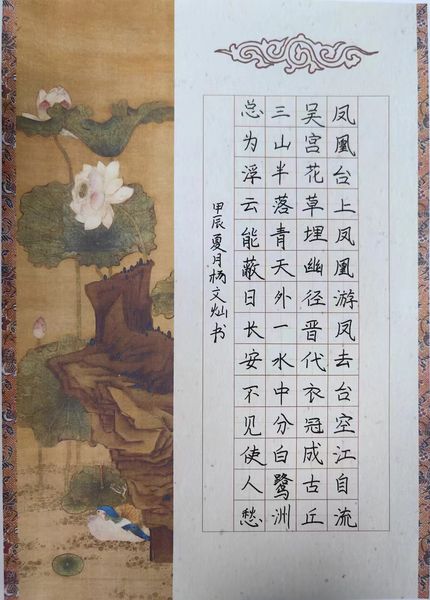 凤凰台上凤凰游凤去台空江自流
吴宫花草埋幽径晋代衣冠成古丘
三山半落青天外一水中分白鹭洲
总为浮云能蔽日长安不见使人愁
甲辰夏月杨文灿书